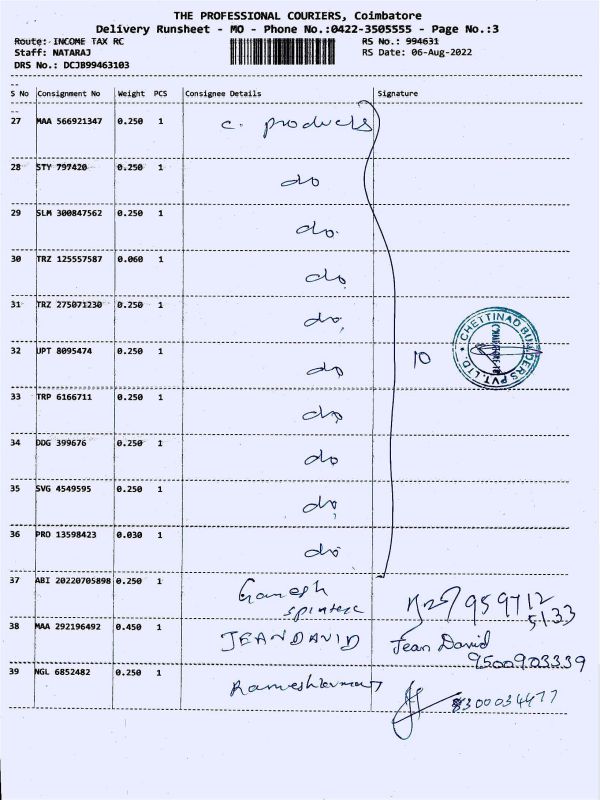 THE PROFESSIONAL COURIERS, Coimbatore
Delivery Runsheet - MO - Phone No.:0422-3505555 - Page No.:3
Route: INCOME TAX RC RS No.: 994631
Staff: NATARAJ RS Date: 06-Aug-2022
DRS No.: DCJB99463103
S No Consignment No Weight PCS Consignee Details Signature
27 MAA 566921347 0.250 1 C. products
28 STY 797420 0.250 1 do
29 SLM 300847562 0.250 1 do
30 TRZ 125557587 0.060 1 do
31 TRZ 275071230 0.250 1 do
32 UPT 8095474 0.250 1 do 10 CHETTINAD BUILDERS PVT. LTD.
33 TRP 6166711 0.250 1 do
34 DDG 399676 0.250 1 do
35 SVG 4549595 0.250 1 do
36 PRO 13598423 0.030 1 do
37 ABI 20220705898 0.250 1 Ganesh
959712
5133
38 MAA 292196492 0.450 1 JEAN DAVID Jean David
9500903339
39 NGL 6852482 0.250 1 8300034477